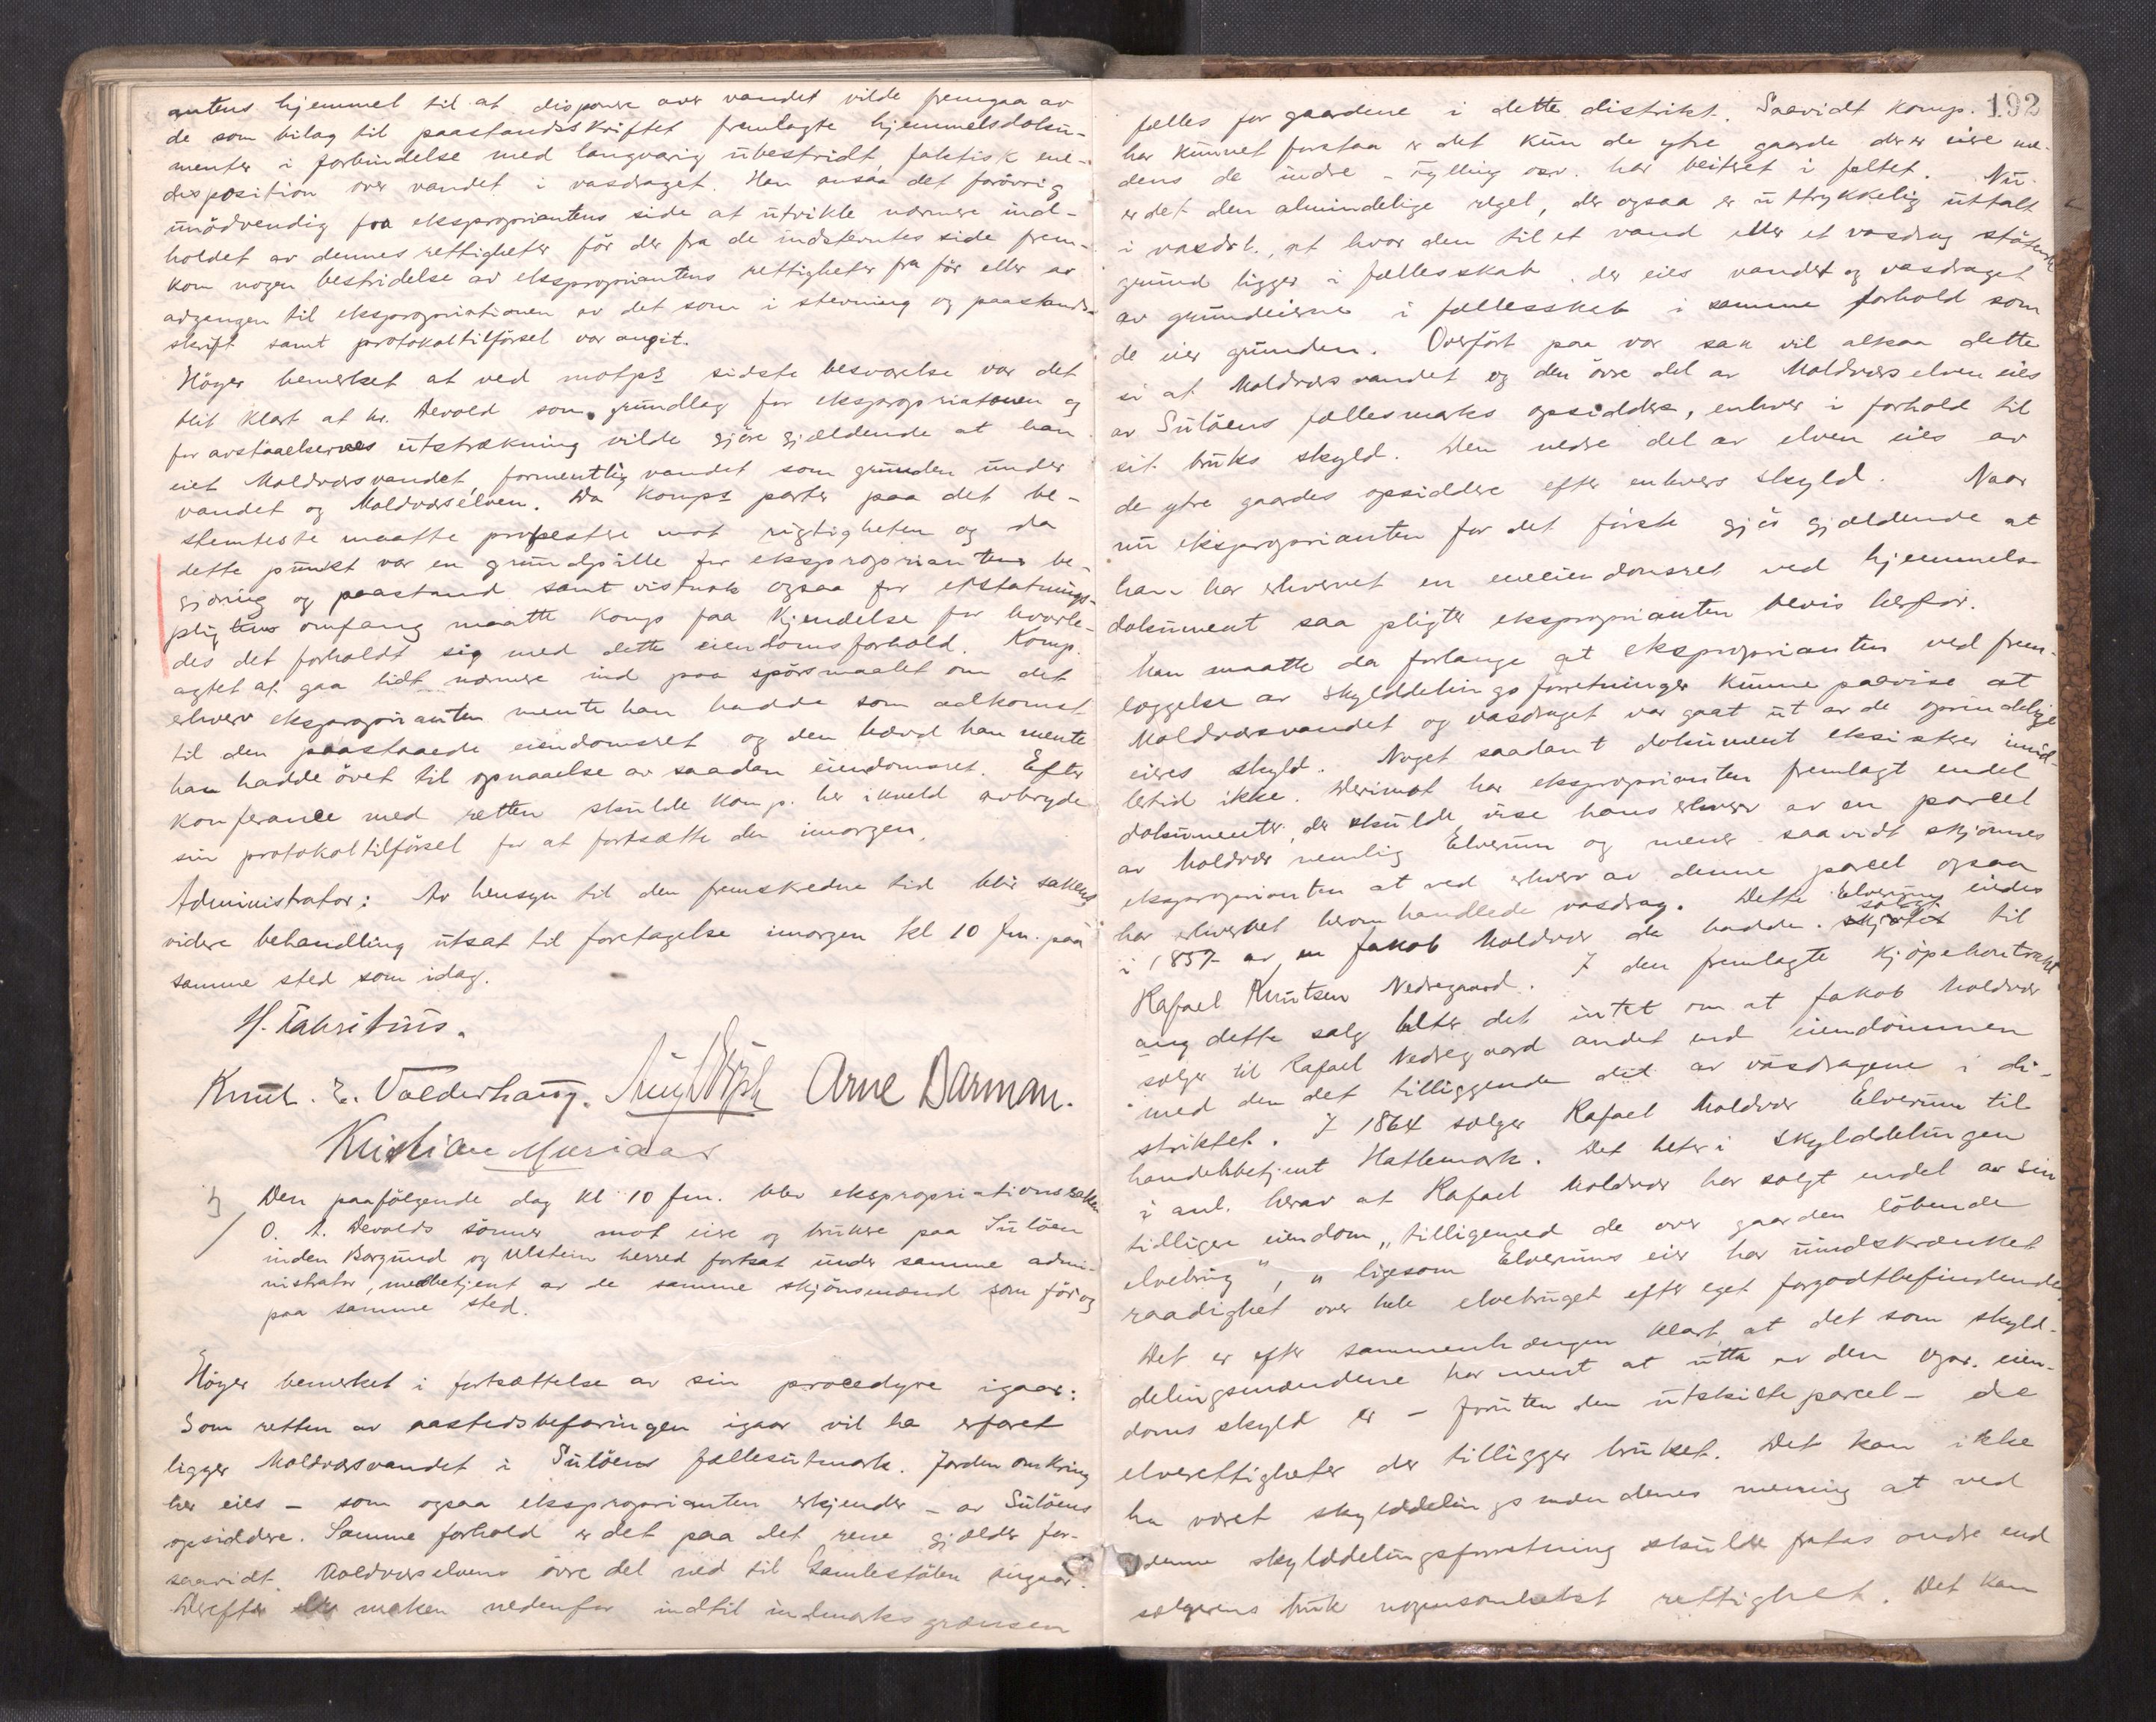 antens hjemmel til at disponere over vandet vilde fremgaa av
de som bilag til paastandsskriftet fremlagte hjemmelsdoku-
menter i forbindelse med langvarig ubestridt, faktisk ene-
disposition over vandet i vasdraget. Han ansaa det forøvrig
unødvendig fra ekspropriantens side at utvikle nærmere ind-
holdet av dennes rettigheter før der fra de indstevntes side frem-
kom nogen bestridelse av ekspropriantens rettigheter fra før eller av
adgangen til ekspropriationen av det som i stevning og paastands-
skrift samt protokoltilførsel var angit.
Høyer bemerket at ved motps sidste besvarelse var det
blit klart at hr. Devold som grundlag for ekspropriationen og
for avstaaelsernes utstrækning vilde gjøre gjældende at han
eiet Moldværsvandet, formentlig vandet som grunden under
vandet og Moldværselven. Da komps parter paa det be-
stemteste maatte protestere mot rigtigheten og da
dette punkt var en grundpille for ekspropriantens be-
gjæring og paastand samt vistnok ogsaa for erstatnings-
pligtens omfang maatte komp faa kjendelse for hvorle-
des det forholdt sig med dette eiendomsforhold. Komp.
agtet at gaa lidt nærmere ind paa spørsmaalet om det
erhverv eksproprianten mente han hadde som adkomst
til den paastaaede eiendomsret og den hævd han mente
han hadde øvet til opnaaelse av saadan eiendomsret. Efter
konferance med retten skulde komp. her ikveld avbryde
sin protokoltilførsel for at fortsætte den imorgen.
Administrator: Av hensyn til den fremskredne tid blir sakens
videre behandling utsat til foretagelse imorgen kl 10 fm. paa
samme sted som idag.
Knut. E. Valderhaug. Arne Barman.
Kristian
Den paafølgende dag kl 10 fm. blev ekspropriationssaken
O. A. Devolds sønner mot eiere og brukere paa Suløen
inden Borgund og Ulstein herred fortsat under samme admi-
nistrator, medbetjent av de samme skjønsmænd som før og
paa samme sted.
Høyer bemerket i fortsættelse av sin procedyre igaar:
Som retten av aastedsbefaringen igaar vil ha erfaret
ligger Moldværsvandet i Suløens fællesutmark. Jorden omkring
her eies - som ogsaa eksproprianten erkjender - av Suløens
opsiddere. Samme forhold er det paa det rene gjælder for-
saavidt Moldværselvens øvre del ned til Gamlestølen angaar.
Derefter er marken nedenfor indtil indmarksgrænsen
192
fælles for gaardene i dette distrikt. Saavidt komp.
har kunnet forstaa er det kun de ytre gaarde der er eiere me-
dens de indre - osv. har beitret i feltet. Nu
er det den almindelige regel, der ogsaa er uttrykkelig uttalt
i vasdrl., at hvor den til et vand eller et vasdrag støtende
grund ligger i fællesskab, der eies vandet og vasdraget
av grundeierne i fællesskab i samme forhold som
de eier grunden. Overført paa vor sak vil altsaa dette
si at Moldværsvandet og den øvre del av Moldværselven eies
av Suløens fællesmarks opsiddere, enhver i forhold til
sit bruks skyld. Den nedre del av elven eies av
de ytre gaardes opsiddere efter enhvers skyld. Naar
nu eksproprianten for det første gjør gjældende at
han har erhvervet en eneeiendomsret ved hjemmels-
dokument saa pligter eksproprianten bevis herfor.
Man maatte da forlange at eksproprianten ved frem-
læggelse av skylddelingsforretninger kunne paavise at
Moldværsvandet og vasdraget var gaat ut av de oprindelige
eieres skyld. Noget saadant dokument eksisterer imid-
lertid ikke. Derimot har eksproprianten fremlagt endel
dokumenter, der skulde vise hans erhverv av en parcel
av Moldvær nemlig Elverum og mener saavidt skjønnes
eksproprianten at ved erhverv av denne parcel ogsaa
har erhvervet heromhandlede vasdrag. Dette Elverum eiedes
i 1857 av en Jakob Moldvær da hadde skjøtet solgt til
Rafael Knutsen Nedregaard. I den fremlagte kjøpekontrakt
ang dette salg heter det intet om at Jakob Moldvær
sælger til Rafael Nedregaard andet end eiendommen
med den det tilliggende del av vasdragene i di-
striktet. I 1864 sælger Rafael Moldvær Elverum til
handelsbetjent Hattemark. Det heter i skylddelingen
i anl. herav at Rafael Moldvær har solgt endel av sin
tidligere eiendom „tilligemed de over gaarden løbende
elvebrug", „ligesom Elverums eier har uindskrænket
raadighet over hele elvebruget efter eget forgodtbefindende
Det er efter sammenhængen klart, at det som skyld-
delingsmændene har ment at utta av den opr. eien-
doms skyld er - foruten den utskilte parcel - de
elverettigheter der tilligger bruket. Det kan ikke
ha været skylddelingsmændenes mening at ved
denne skylddelingsforretning skulde fratas andre end
sælgerens bruk nogensomhelst rettighet. Det kan